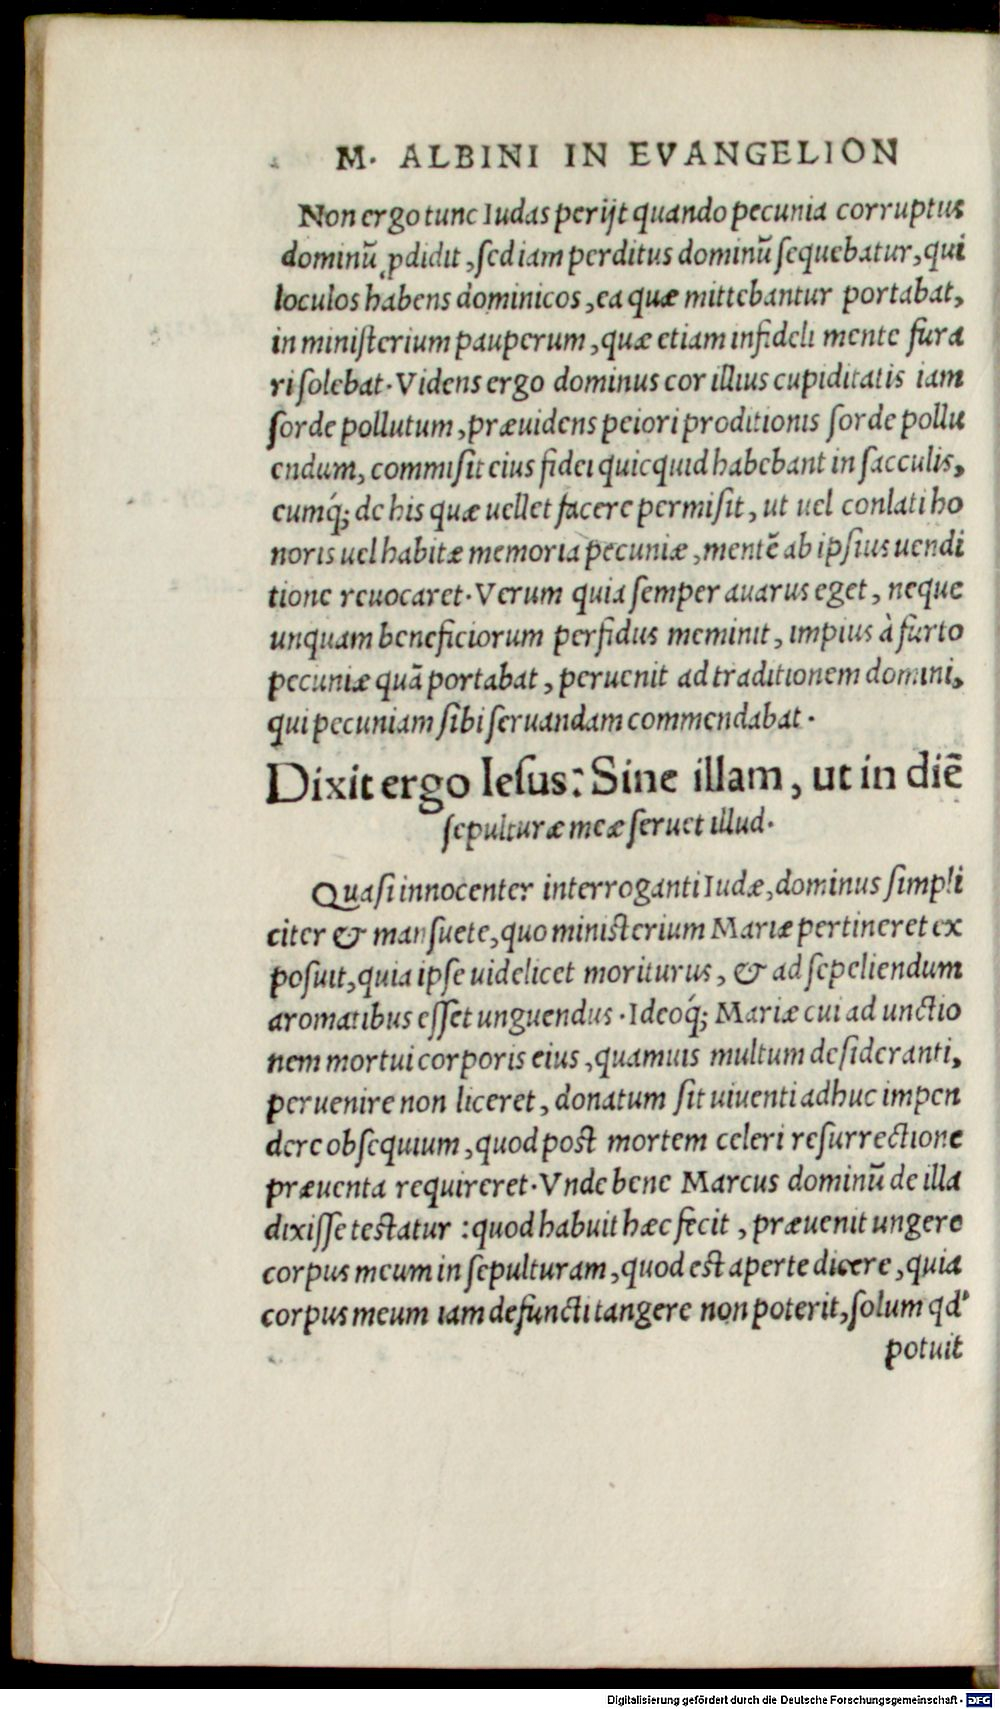 M. ALBINI IN EVANGELION
Non ergo tunc Iudas perijt quando pecunia corruptus
dominū ꝓdidit, sed iam perditus dominū sequebatur, qui
loculos habens dominicos, ea quæ mittebantur portabat,
in ministerium pauperum, quæ etiam infideli mente fura
ri solebat. Videns ergo dominus cor illius cupiditatis iam
sorde pollutum, præuidens peiori proditionis sorde pollu
endum, commisit eius fidei quicquid habebant in sacculis,
eumq́; de his quæ uellet facere permisit, ut uel conlati ho
noris uel habitæ memoria pecuniæ, mentē ab ipsius uendi
tione reuocaret. Verum quia semper auarus eget, neque
unquam beneficiorum perfidus meminit, impius à furto
pecuniæ quā portabat, peruenit ad traditionem domini,
qui pecuniam sibi seruandam commendabat.
Dixit ergo Iesus: Sine illam, ut in diē
sepulturæ meæ seruet illud.
Quasi innocenter interroganti Iudæ, dominus simpli
citer & mansuete, quo ministerium Mariæ pertineret ex
posuit, quia ipse uidelicet moriturus, & ad sepeliendum
aromatibus esset unguendus. Ideoq́; Mariæ cui ad unctio
nem mortui corporis eius, quamuis multum desideranti,
peruenire non liceret, donatum sit uiuenti adhuc impen
dere obsequium, quod post mortem celeri resurrectione
præuenta requireret. Vnde bene Marcus dominū de illa
dixisse testatur: quod habuit hæc fecit, præuenit ungere
corpus meum in sepulturam, quod est aperte dicere, quia
corpus meum iam defuncti tangere non poterit, solum qd'
potuit
Digitalisierung gefördert durch die Deutsche Forschungsgemeinschaft - DFG